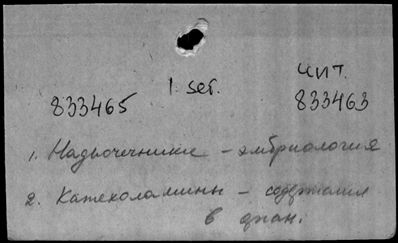 1. set.
чит.
833465
833463
1. Надпочечники - эмбриология
2. Катехоламины - содержание
в орган.